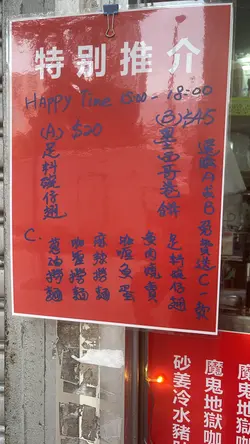 特别推介
Happy Time 15:00 - 18:00
(A) $20
足料碗仔翅
(B) $45
墨西哥卷餅
選購A或B免費送C一款
C.
足料碗仔翅
魚肉燒賣
咖喱魚蛋
麻辣撈麵
咖喱撈麵
蔥油撈麵
魔鬼地獄咖
魔鬼地獄
砂姜冷水豬